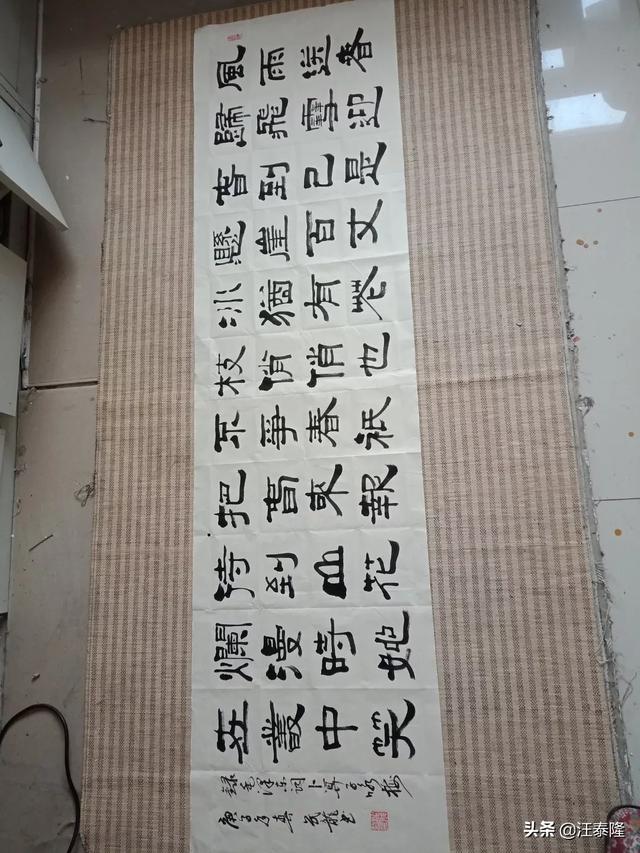 風雨送春
歸飛雪迎
春到已是
懸崖百丈
冰猶有花
枝俏俏也
不爭春祇
把春來報
待到山花
爛漫時她
在叢中笑
錄毛澤东词卜算子咏梅
庚子年
头条 @汪泰隆